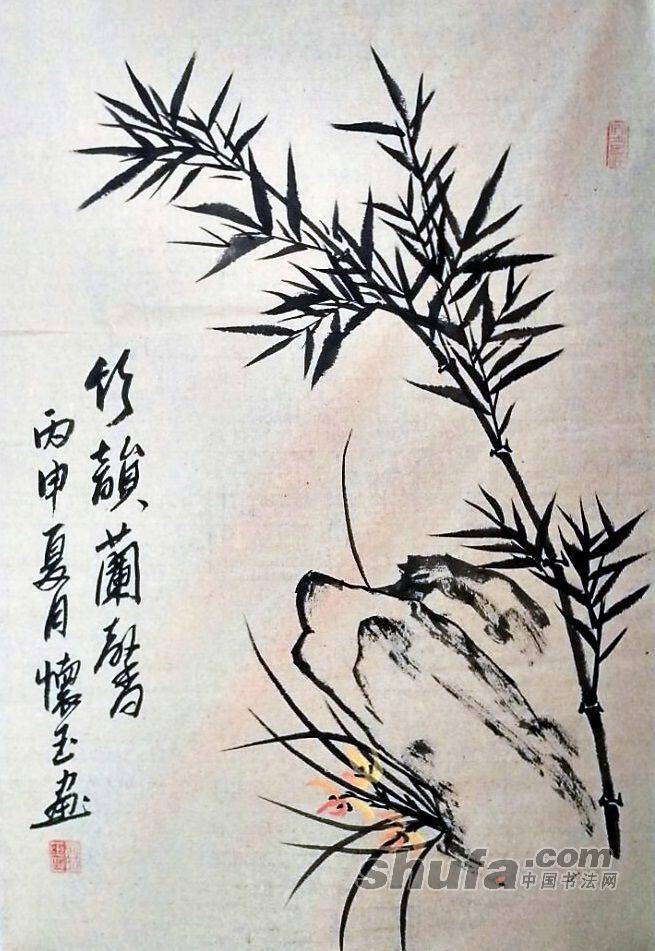 竹韻蘭馨
丙申夏月懷玉畫
shufa.com
中国书法网